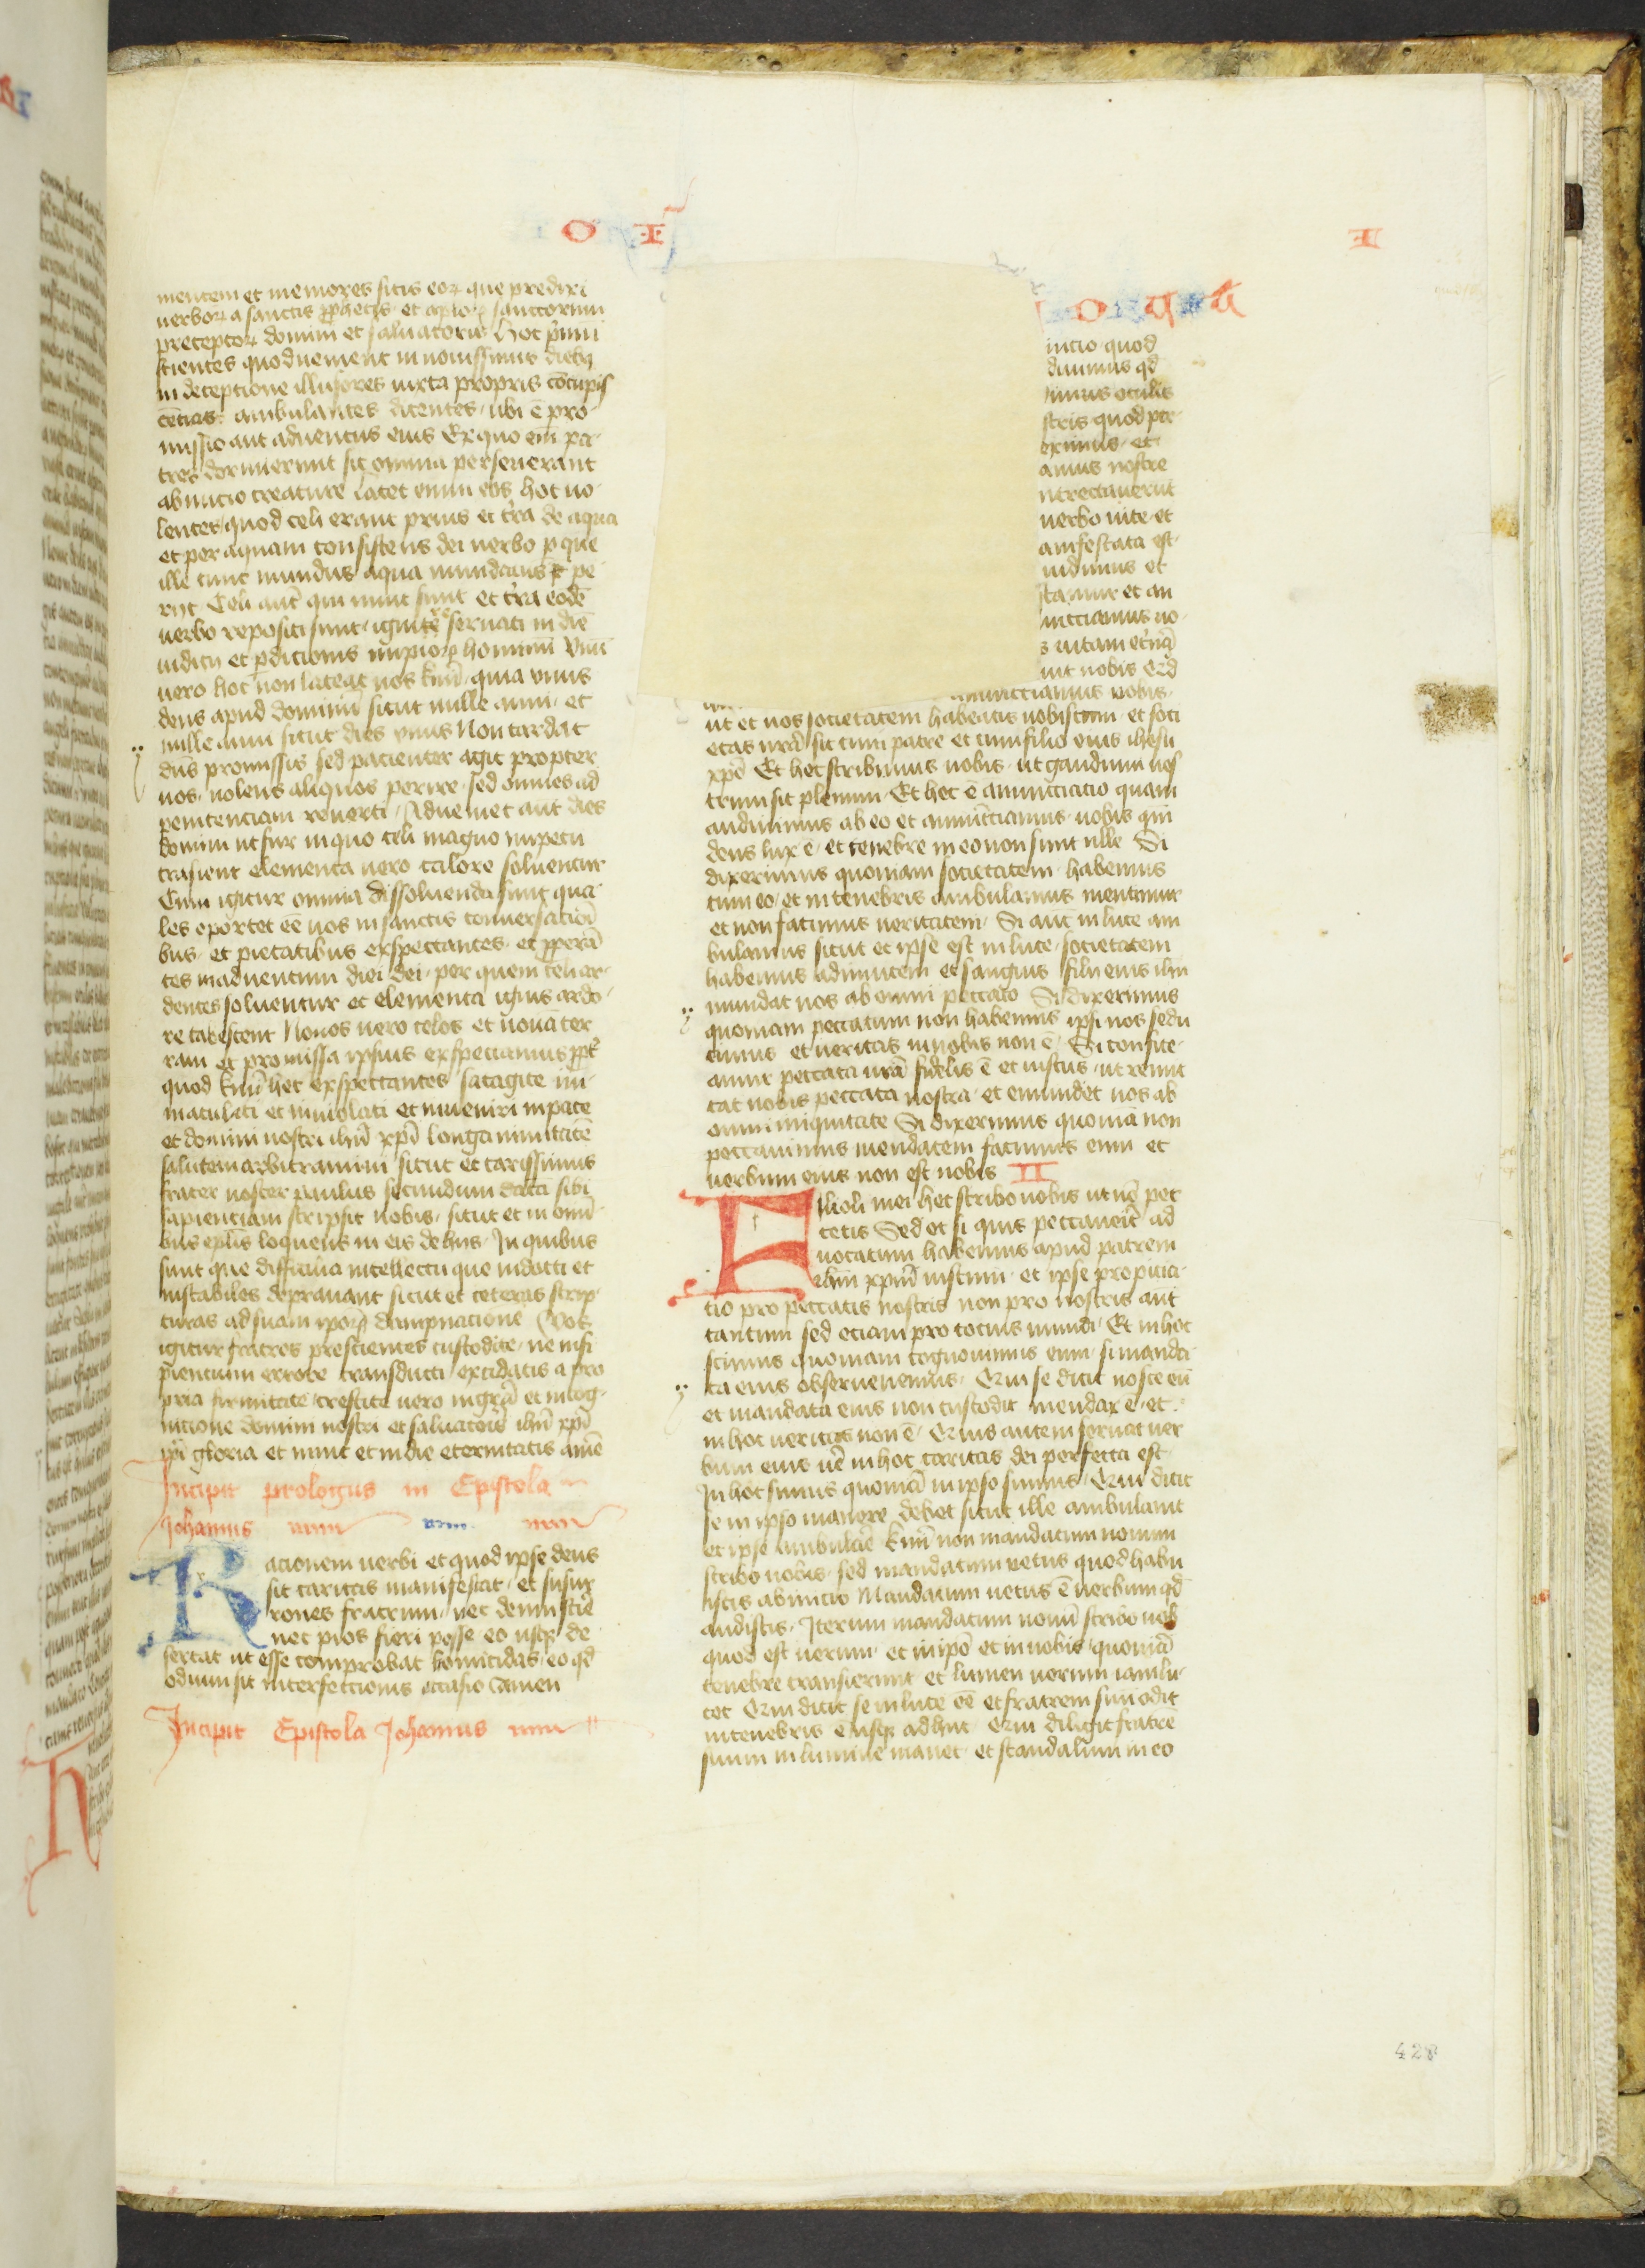 O I
I
mentem et memores sitis eoꝝ que predixi
verboꝝ a sanctis ꝓphetis et aploꝝ sanctorum
preceptoꝝ domini et saluatoris Hoc pͥmu
scientes quod venient in nouissimis diebꝫ
in deceptione illusores iuxta propris cōcupis
cētias ambulantes dicentes ubi ē pro
missio aut aduentus eius Ex quo em̄ pa
tres dormierunt sic omnia perseuerant
ab inicio creature latet enim eos hoc uo
lentes quod celi erant prius et tͬra de aqua
et per aquam consistens dei uerbo ꝑ que
ille tunc mundus aqua inundatus pe
rijt Celi aut̄ qui nunc sunt et tͬra eodē
uerbo repositi sunt igni reseruati in diē
iudicij et ꝑdicionis impioꝝ hominū Vnū
uero hoc non lateat uos kͫmi quia unus
dens apud dominū sicut mille anni et
mille anni sicut dies unus Non tardat
dn̄s promissis sed pacienter agit propter
uos nolens aliquos perire sed omnes ad
penitenciam reuerti Adueniet aut dies
domini ut fur in quo celi magno impetu
trāsient elementa uero calore soluentur
Cum igitur omnia dissoluenda sunt qua
les oportet eē uos in sanctis conuersacioī
bus et pietatibus exspectantes et ꝓperā
tes in aduentum diei dei per quem celi ar
dentes soluentur et elementa ignis ardo
re tabescent Nouos uero celos et nouā ter
ram et promissa ipsius exspectamus
quod kͫmi hec exspectantes satagite im
maculati et inuiolati et inueniri in pace
et domini nostri ihū xpī longanimitatē
salutem arbitramini sicut et carissimus
frater noster paulus secundum data sibi
sapienciam scripsit uobis sicut et in omī
bus eplis loquens in eis de hiis In quibus
sunt que difficilia intellectu que indocti et
instabiles deprauant sicut et ceteras scrip
turas ad suam ipoꝝ dampnacionē Vos
igitur fratres prescientes custodite ne insi
piencium errore transducti excidatis a pro
pria firmitate crescite uero in grā et in cog
nicione domini nostri et saluatoris ihū xpī
ipi gloria et nunc et in die eternitatis amē
Incipit prologus in Epistola
Johannis
Racionem uerbi et quod ipse deus
sit caritas manifestat et susur
rones fratrum nec denuo sciē
nec pios fieri posse eo usqꝫ de
sertat ut esse comprobat homicidas eo qd̄
odium sit interfectionis occasio Amen
Incipit Epistola Johannis
inicio quod
diuimus qd̄
imus oculis
stris quod per
eximus et
anus nostre
ntrectauerūt
uerbo uite et
anifestata est
uidimus et
stamur et an
unciamus uo
s uitam etͬnā
uit nobis Qd̄
annunciamus uobis
ut et uos societatem habeatis nobiscum et soci
etas nrā sit cum patre et cum filio eius ihesu
xpō Et hec scribimus uobis ut gaudium ues
trum sit plenum Et hec ē annunciacio quam
audiuimus ab eo et annunciamus uobis qm̄
deus lux ē et tenebre in eo non sunt ulle Si
dixerimus quoniam societatem habemus
cum eo et in tenebris ambulamus mentimur
et non facimus ueritatem Si aut in luce am
bulamus sicut et ipse est in luce societatem
habemus adinuicem et sanguis filii eius ihū
mundat nos ab omni peccato Si dixerimus
quoniam peccatum non habemus ipsi nos sedu
cimus et ueritas in nobis non ē Si confite
amur peccata nrā fidelis ē et iustus ut remit
tat nobis peccata nostra et emundet nos ab
omni iniquitate Si dixerimus quoniā non
peccauimus mendacem facimus eum et
uerbum eius non est nobis II
Filioli mei hec scribo uobis ut nō pec
cetis Sed et si quis peccauerit ad
uocatum habemus apud patrem
ihm xpm̄ iustum et ipse propicia
tio pro peccatis nostris non pro nostris aut
tantum sed etiam pro tocius mundi Et in hoc
scimus quoniam cognouimus eum si manda
ta eius obseruauerimus Qui se dicit nosce eū
et mandata eius non custodit mendax ē et
in hoc ueritas non ē Qui uis autem seruat uer
bum eius uē in hoc caritas dei perfecta est
In hoc scimus quoniā in ipso sumus Qui dicit
se in ipso manere debet sicut ille ambulauit
et ipse ambulare kͫmi non mandatum nouum
scribo uobis sed mandatum uetus quod habu
istis ab inicio Mandatum uetus ē uerbum qd̄
audistis Iterum mandatum nouū scribo uob
quod est uerum et in ipō et in uobis quoniā
tenebre transierunt et lumen uerum iam lu
cet Qui dicit se in luce eē et fratrem suū odit
in tenebris ē usqꝫ adhuc Qui diligit fratrē
suum in lumine manet et scandalum in eo
428